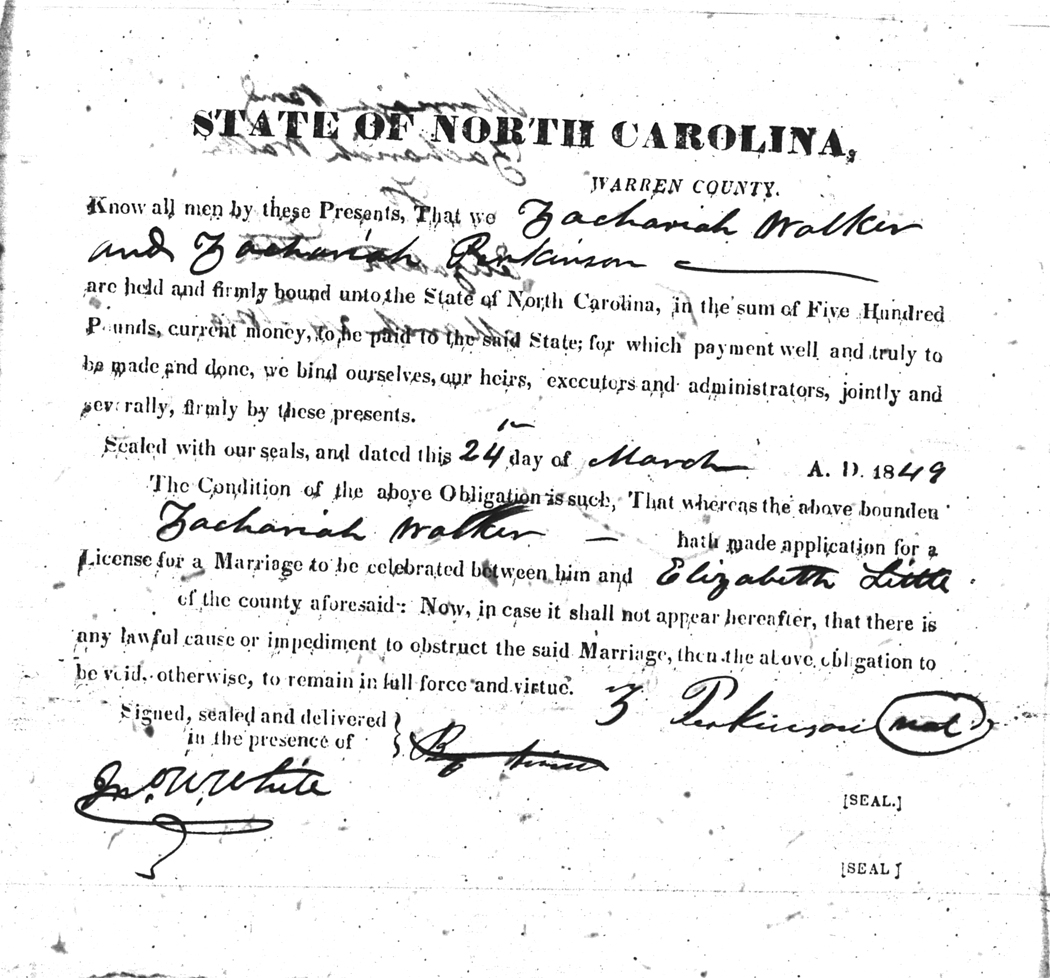 STATE OF NORTH CAROLINA,
WARREN COUNTY.
Know all men by these Presents, That we Zachariah Walker
and Zachariah Perkinson
are held and firmly bound unto the State of North Carolina, in the sum of Five Hundred
Pounds, current money, to be paid to the said State; for which payment well and truly to
be made and done, we bind ourselves, our heirs, executors and administrators, jointly and
severally, firmly by these presents.
Sealed with our seals, and dated this 24 day of March A. D. 1849
The Condition of the above Obligation is such, That whereas the above bounden
Zachariah Walker — hath made application for a
License for a Marriage to be celebrated between him and Elizabeth Little
of the county aforesaid: Now, in case it shall not appear hereafter, that there is
any lawful cause or impediment to obstruct the said Marriage, then the above obligation to
be void, otherwise, to remain in full force and virtue.
Z Perkinson
Signed, sealed and delivered
in the presence of
Jno. W. White
[SEAL.]
[SEAL]